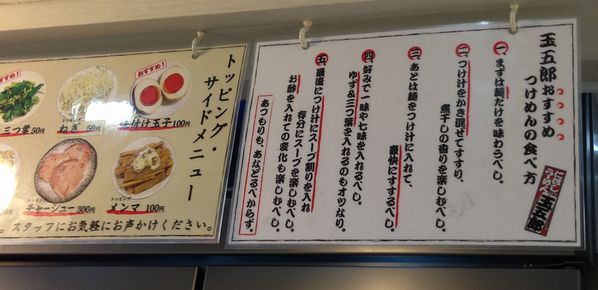 トッピング・
サイドメニュー
おすすめ!
三つ葉 50円
ねぎ 50円
おすすめ!
味付け玉子 100円
チャーシュー 300円
メンマ 100円
スタッフにお気軽にお声かけください。
玉五郎おすすめ
つけめんの食べ方
玉五郎
一、まずは麺だけを味わうべし。
二、つけ汁をかき混ぜてすすり、
煮干しの香りを楽しむべし。
三、あとは麺をつけ汁に入れて、
豪快にすするべし。
四、好みで一味や七味を入れるべし。
ゆず&三つ葉を入れるのもオツなり。
五、最後につけ汁にスープ割りを入れ
存分にスープを楽しむべし。
お酢を入れての変化も楽しむべし。
あつもりも、あなどるべからず。